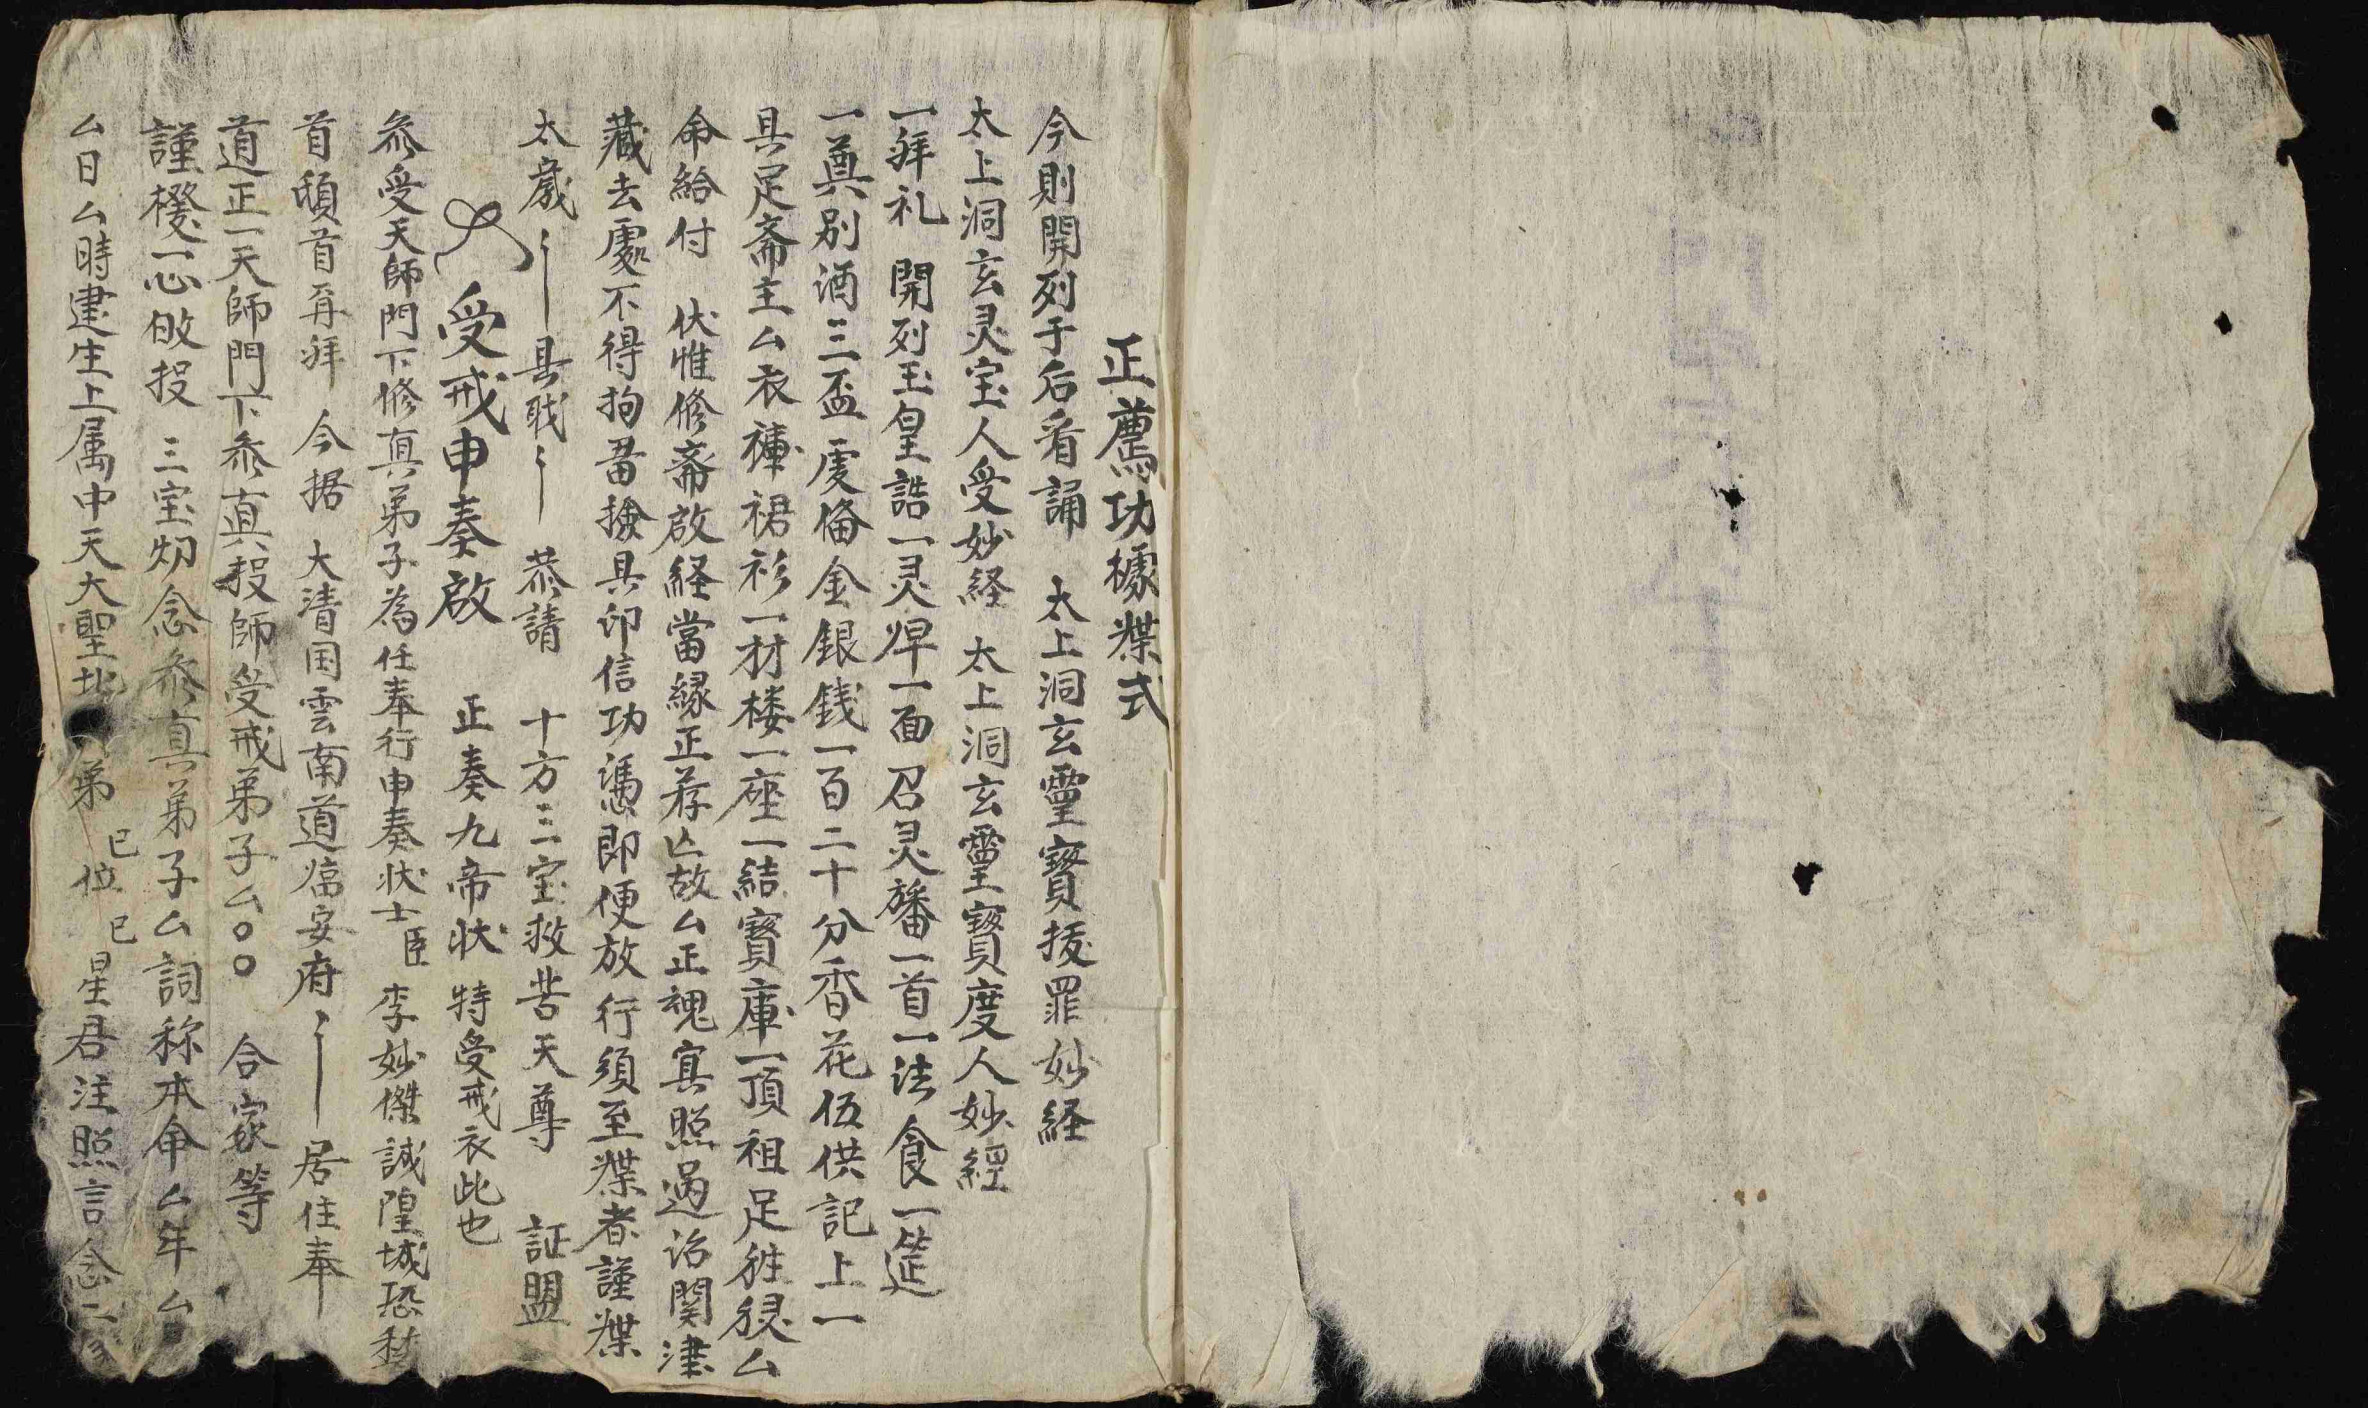 正薦功據牒式
今則開列于后看誦 太上洞玄靈寶拔罪妙経
太上洞玄灵宝人受妙経 太上洞玄靈寶度人妙經
一拜礼 開列玉皇誥一灵 一面召灵旛一首一法食一筵
一奠别酒三盃 虔俻金銀銭一百二十分香花伍供記上一
具足斋主厶衣褲裙衫一材楼一座一結寶庫一頂祖足 厶
命給付 伏惟修斋啟経當縁正荐亾故厶正魂寘照過 関津
藏去處不得拘畱撿具印信功憑即便放行須至牒者謹牒
太歲 具戝 恭請 十方三宝救苦天尊 証盟
受戒申奏啟 正奏九帝状 特受戒衣此也
叅受天師門下修真弟子為任奉行申奏状士臣 李妙傑誠隍城恐
首頓首再拜 今据 大清国雲南道临安府 居住奉
道正一天師門下叅真投師受戒弟子厶〇〇 合家等
謹 一心敀投 三宝 念叅真弟子厶詞称本命厶年厶
厶日厶時建生上属中天大聖北 弟 位 星君注照言念
已
已